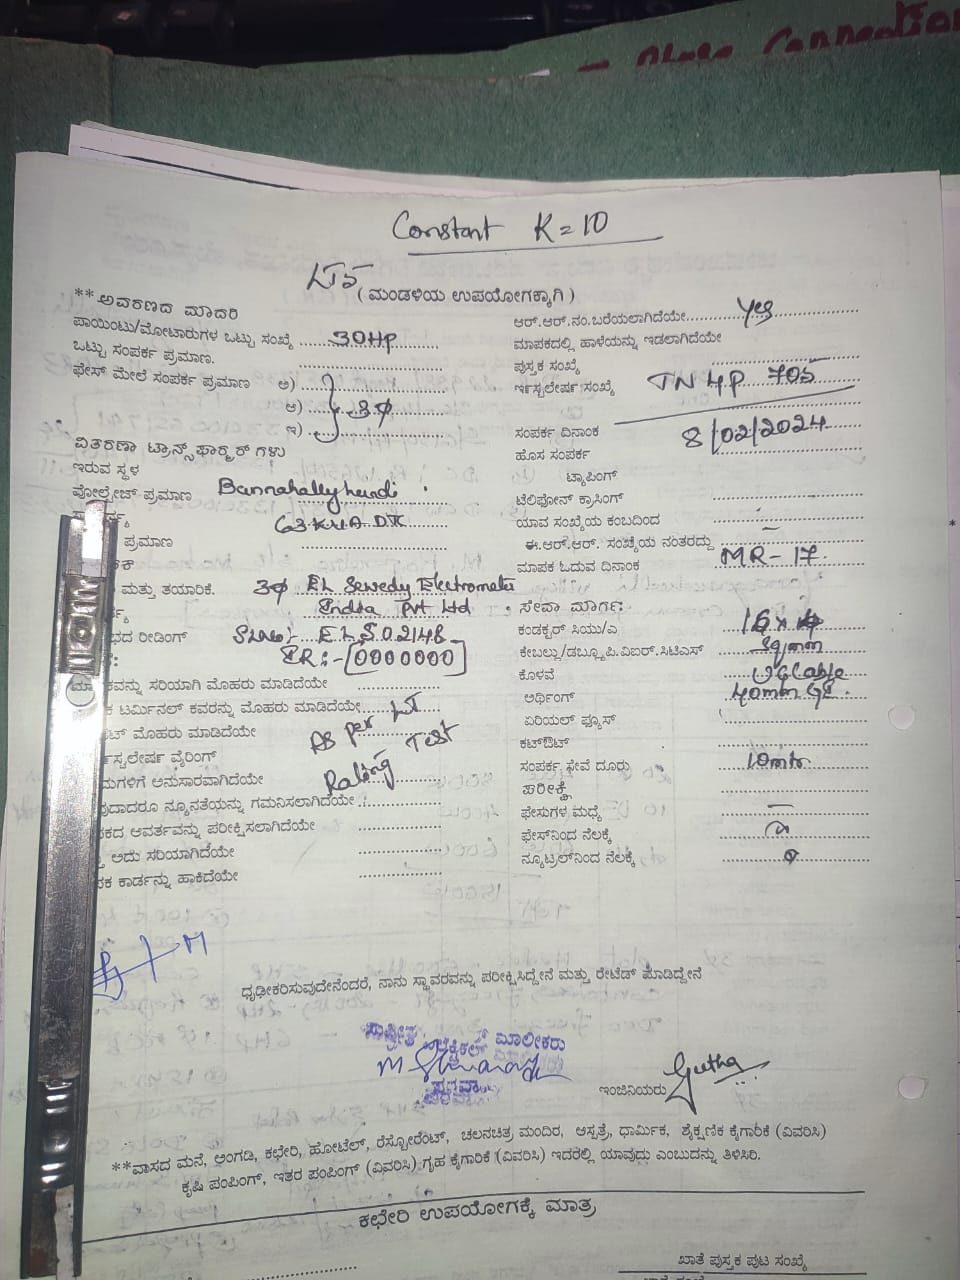 Constant K=10
LT5
(ಮಂಡಳಿಯ ಉಪಯೋಗಕ್ಕಾಗಿ)
**ಅವರಣದ ಮಾದರಿ
ಪಾಯಿಂಟು/ಮೋಟಾರುಗಳ ಒಟ್ಟು ಸಂಖ್ಯೆ 30HP
ಒಟ್ಟು ಸಂಪರ್ಕ ಪ್ರಮಾಣ.
ಫೇಸ್ ಮೇಲೆ ಸಂಪರ್ಕ ಪ್ರಮಾಣ ಅ)
ಆ) 3Φ
ಇ)
ವಿತರಣಾ ಟ್ರಾನ್ಸ್‌ಫಾರ್ಮರ್ ಗಳು
ಇರುವ ಸ್ಥಳ
ವೋಲ್ಟೇಜ್ ಪ್ರಮಾಣ Bannahallyhundi
63KVA
ಪ್ರಮಾಣ
ಮತ್ತು ತಯಾರಿಕೆ. 3Φ EL Sewedy Electrometer
India Pvt Ltd
ರೀಡಿಂಗ್ Sl.No:- ELS02148
IR:- 0000000
ಸರಿಯಾಗಿ ಮೊಹರು ಮಾಡಿದೆಯೇ
ಟರ್ಮಿನಲ್ ಕವರನ್ನು ಮೊಹರು ಮಾಡಿದೆಯೇ
ಮೊಹರು ಮಾಡಿದೆಯೇ As per LT
ವೈರಿಂಗ್ Rating Test
ಅನುಸಾರವಾಗಿದೆಯೇ
ನ್ಯೂನತೆಯನ್ನು ಗಮನಿಸಲಾಗಿದೆಯೇ
ಆವರ್ತವನ್ನು ಪರೀಕ್ಷಿಸಲಾಗಿದೆಯೇ
ಅದು ಸರಿಯಾಗಿದೆಯೇ
ಕಾರ್ಡನ್ನು ಹಾಕಿದೆಯೇ
ಆರ್.ಆರ್.ನಂ.ಬರೆಯಲಾಗಿದೆಯೇ Yes
ಮಾಪಕದಲ್ಲಿ ಹಾಳೆಯನ್ನು ಇಡಲಾಗಿದೆಯೇ
ಪುಸ್ತಕ ಸಂಖ್ಯೆ
ಸಂಖ್ಯೆ TN4P 705
ಸಂಪರ್ಕ ದಿನಾಂಕ 8/02/2024
ಹೊಸ ಸಂಪರ್ಕ
ಟ್ಯಾಪಿಂಗ್
ಟೆಲಿಫೋನ್ ಕ್ರಾಸಿಂಗ್
ಯಾವ ಸಂಖ್ಯೆಯ ಕಂಬದಿಂದ
ಈ.ಆರ್.ಆರ್. ಸಂಖ್ಯೆಯ ನಂತರದ್ದು
ಮಾಪಕ ಓದುವ ದಿನಾಂಕ MR-17
ಸೇವಾ ಮಾರ್ಗ:
ಕಂಡಕ್ಟರ್ ಸಿಯು/ಎ 16×4
ಕೇಬಲ್ಲು/ಡಬ್ಲ್ಯೂ.ಪಿ.ವಿಐಆರ್.ಸಿಟಿಎಸ್ Sq/mm
ಕೊಳವೆ UG Cable
ಅರ್ಥಿಂಗ್ 40mm GI
ಏರಿಯಲ್ ಫ್ಯೂಸ್
ಕಟ್‌ಔಟ್
ಸಂಪರ್ಕ ಫೇವೆ ದೂರು 10mtr
ಪರೀಕ್ಷೆ
ಫೇಸುಗಳ ಮಧ್ಯೆ
ಫೇಸ್‌ನಿಂದ ನೆಲಕ್ಕೆ
ನ್ಯೂಟ್ರಲ್‌ನಿಂದ ನೆಲಕ್ಕೆ
ಧೃಢೀಕರಿಸುವುದೇನೆಂದರೆ, ನಾನು ಸ್ಥಾವರವನ್ನು ಪರೀಕ್ಷಿಸಿದ್ದೇನೆ ಮತ್ತು ರೇಟೆಡ್ ಮಾಡಿದ್ದೇನೆ
ಮಾಲೀಕರು
ಇಂಜಿನಿಯರು
**ವಾಸದ ಮನೆ, ಅಂಗಡಿ, ಕಛೇರಿ, ಹೋಟೆಲ್, ರೆಸ್ಟೋರೆಂಟ್, ಚಲನಚಿತ್ರ ಮಂದಿರ, ಆಸ್ಪತ್ರೆ, ಧಾರ್ಮಿಕ, ಶೈಕ್ಷಣಿಕ ಕೈಗಾರಿಕೆ (ವಿವರಿಸಿ)
ಕೃಷಿ ಪಂಪಿಂಗ್, ಇತರ ಪಂಪಿಂಗ್ (ವಿವರಿಸಿ) ಗೃಹ ಕೈಗಾರಿಕೆ (ವಿವರಿಸಿ) ಇದರಲ್ಲಿ ಯಾವುದು ಎಂಬುದನ್ನು ತಿಳಿಸಿರಿ.
ಕಛೇರಿ ಉಪಯೋಗಕ್ಕೆ ಮಾತ್ರ
ಖಾತೆ ಪುಸ್ತಕ ಪುಟ ಸಂಖ್ಯೆ